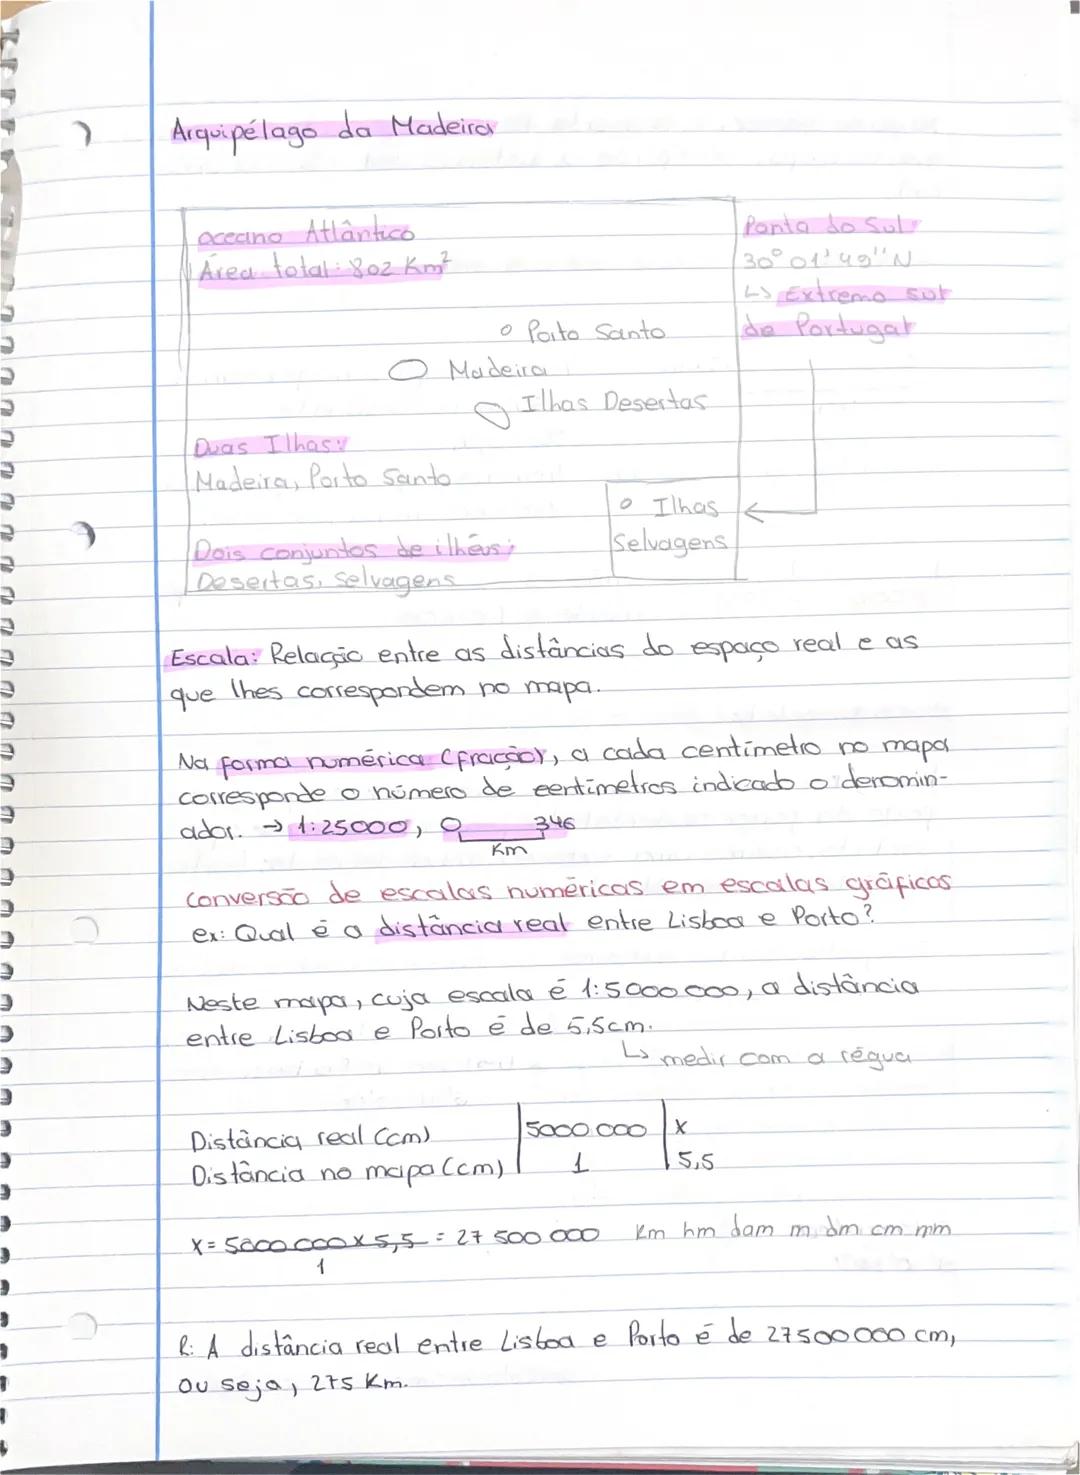 Arquipélago da Madeira
oceano Atlântico
Área total: 802 Km²
Ponta do Sul:
30° 01' 49" N
↳ Extremo sul
de Portugal
Porto Santo
Madeira
Ilhas Desertas
Duas Ilhas:
Madeira, Porto Santo
Ilhas
Selvagens
Dois conjuntos de ilhéus:
Desertas, Selvagens
Escala: Relação entre as distâncias do espaço real e as
que lhes correspondem no mapa.
Na forma numérica (fração), a cada centímetro no mapa
corresponde o número de centímetros indicado o denomin-
ador. → 1:25000, 0 346
Km
conversão de escalas numéricas em escalas gráficas
ex: Qual é a distância real entre Lisboa e Porto?
Neste mapa, cuja escala é 1:5000 000, a distância
entre Lisboa e Porto é de 5,5cm.
↳ medir com a régua
Distância real (cm) | 5000 000 | x
Distância no mapa (cm) | 1 | 5,5
x = 5000 000 x 5,5 = 27 500 000 Km hm dam m dm cm mm
1
R: A distância real entre Lisboa e Porto é de 27500 000 cm,
ou seja, 275 Km.